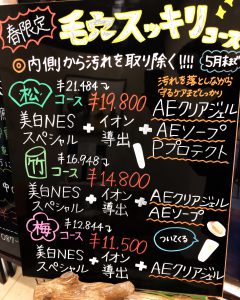 春限定
毛穴スッキリコース
◎内側から汚れを取り除く!!!!
5月末まで
汚れを落としながら
守るケアまでしっかり
松コース
¥21.484
¥19.800
美白NES
スペシャル
+イオン
導出
+AEクリアジェル
AEソープ
Pプロテクト
竹コース
¥16.948
¥14.800
美白NES
スペシャル
+イオン
導出
+AEクリアジェル
AEソープ
梅コース
¥12.844
¥11.500
ついてくる
美白NES
スペシャル
+イオン
導出
+AEクリアジェル